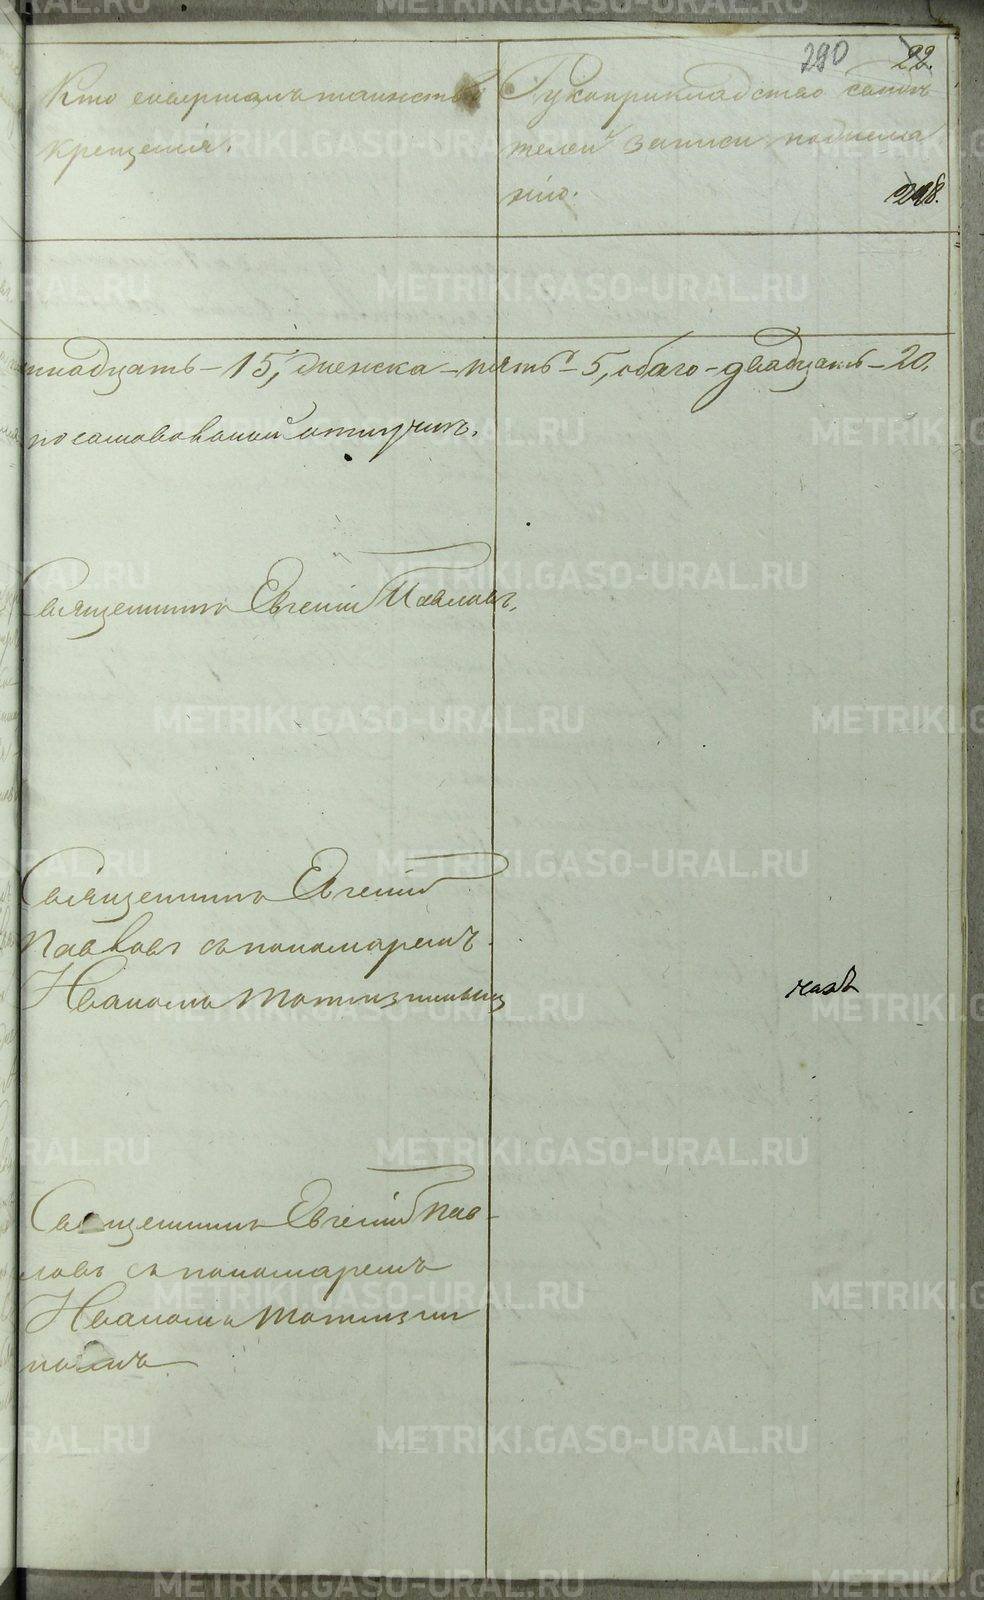 290 22.
Кто совершалъ таинство
крещенія.
Рукоприкладство свидѣ
телей записи по жела
нію.
228.
надцать – 15, женска – пять – 5, обаго – двадцать – 20.
Священникъ Евгеній Павловъ.
Священникъ Евгеній
Павловъ съ пономаремъ
Иваномъ
Священникъ Евгеній Пав-
ловъ съ пономаремъ
Иваномъ
METRIKI.GASO-URAL.RU